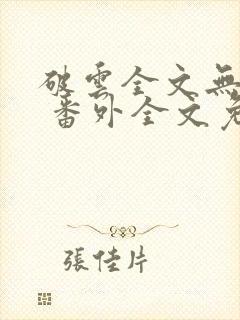 破雲全文無
番外全文免
張佳片